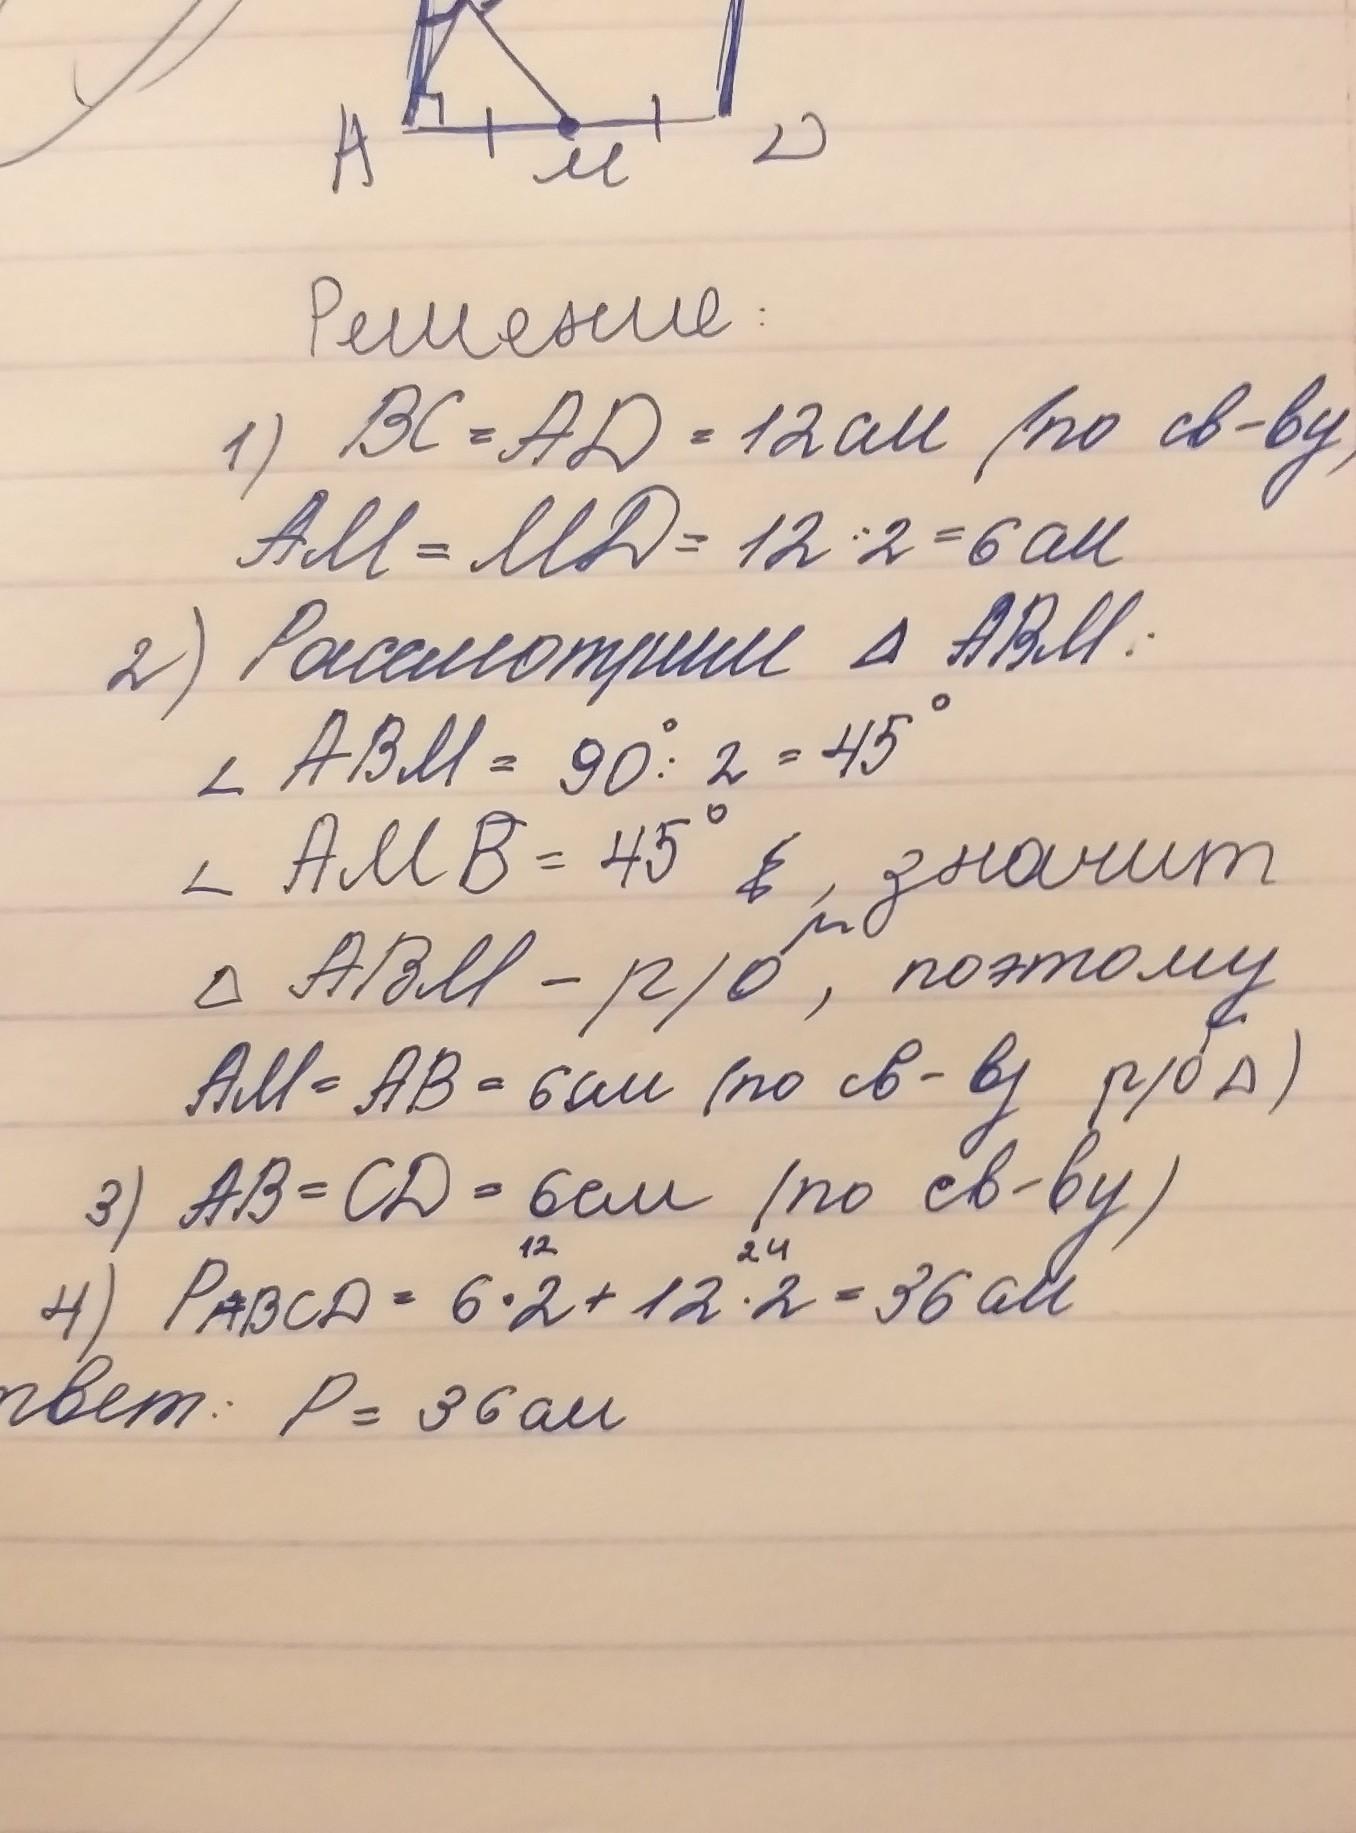 А М D
Решение:
1) BC = AD = 12 см (по св-ву)
AM = MD = 12 : 2 = 6 см
2) Рассмотрим Δ ABM:
∠ ABM = 90° : 2 = 45°
∠ AMB = 45° , значит
Δ ABM – р/б, поэтому
AM = AB = 6 см (по св-ву р/б Δ)
3) AB = CD = 6 см (по св-ву)
12 24
4) PABCD = 6 · 2 + 12 · 2 = 36 см
твет: P = 36 см